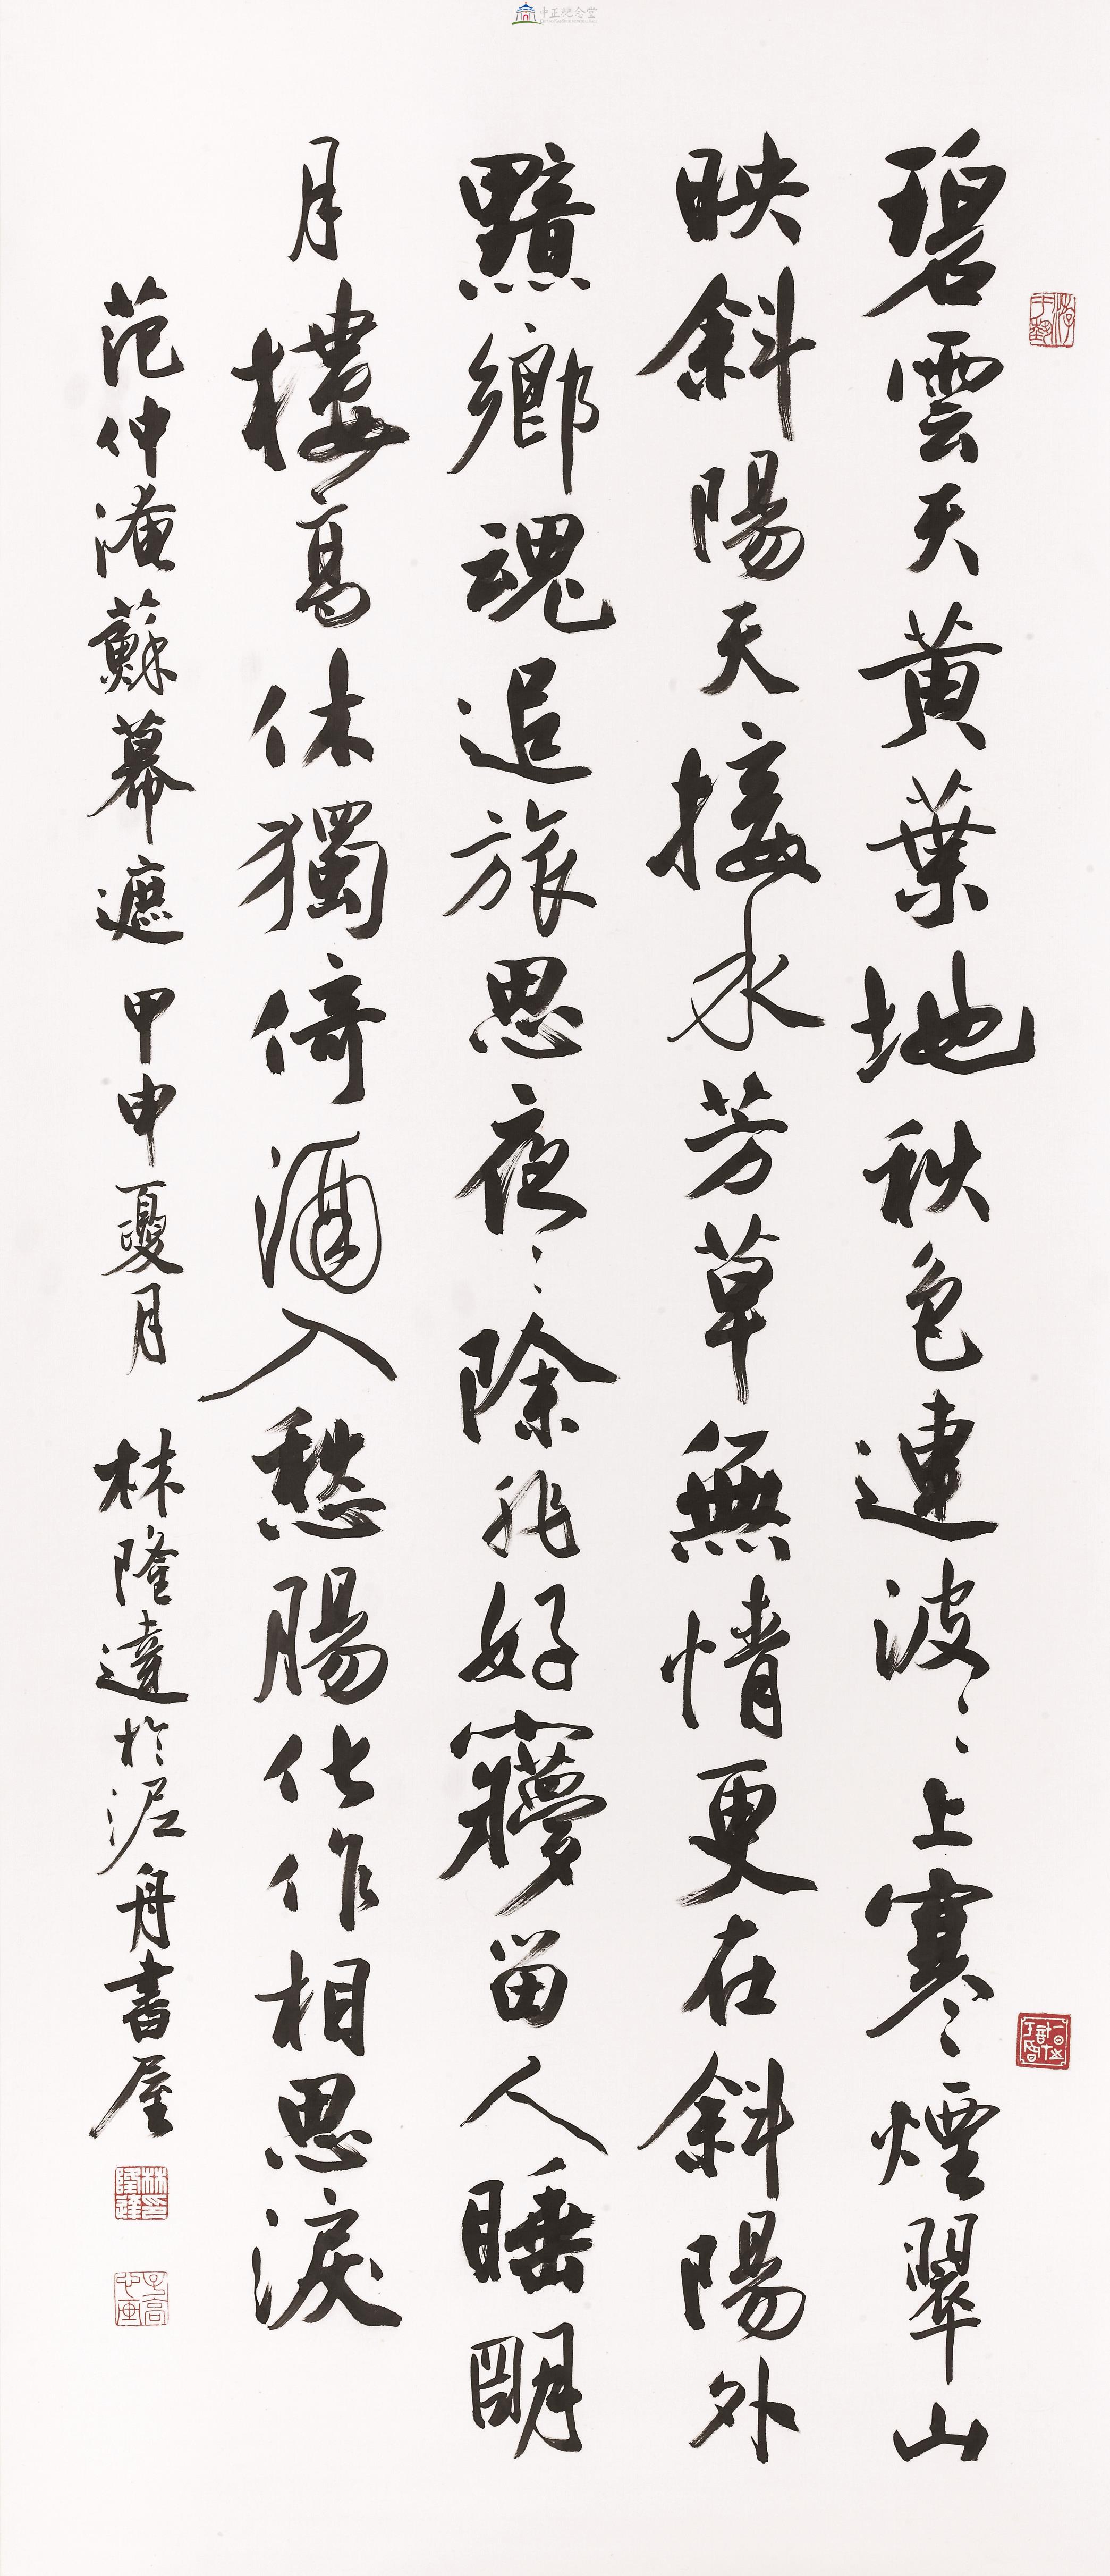 中正紀念堂
碧雲天黃葉地秋色連波〻上寒〻煙翠山
映斜陽天接水芳草無情更在斜陽外
黯鄉魂追旅思夜〻除非好夢留人睡明
月樓高休獨倚酒入愁腸化作相思淚
范仲淹蘇幕遮 甲申夏月 林隆達於泥舟書屋
林隆達印